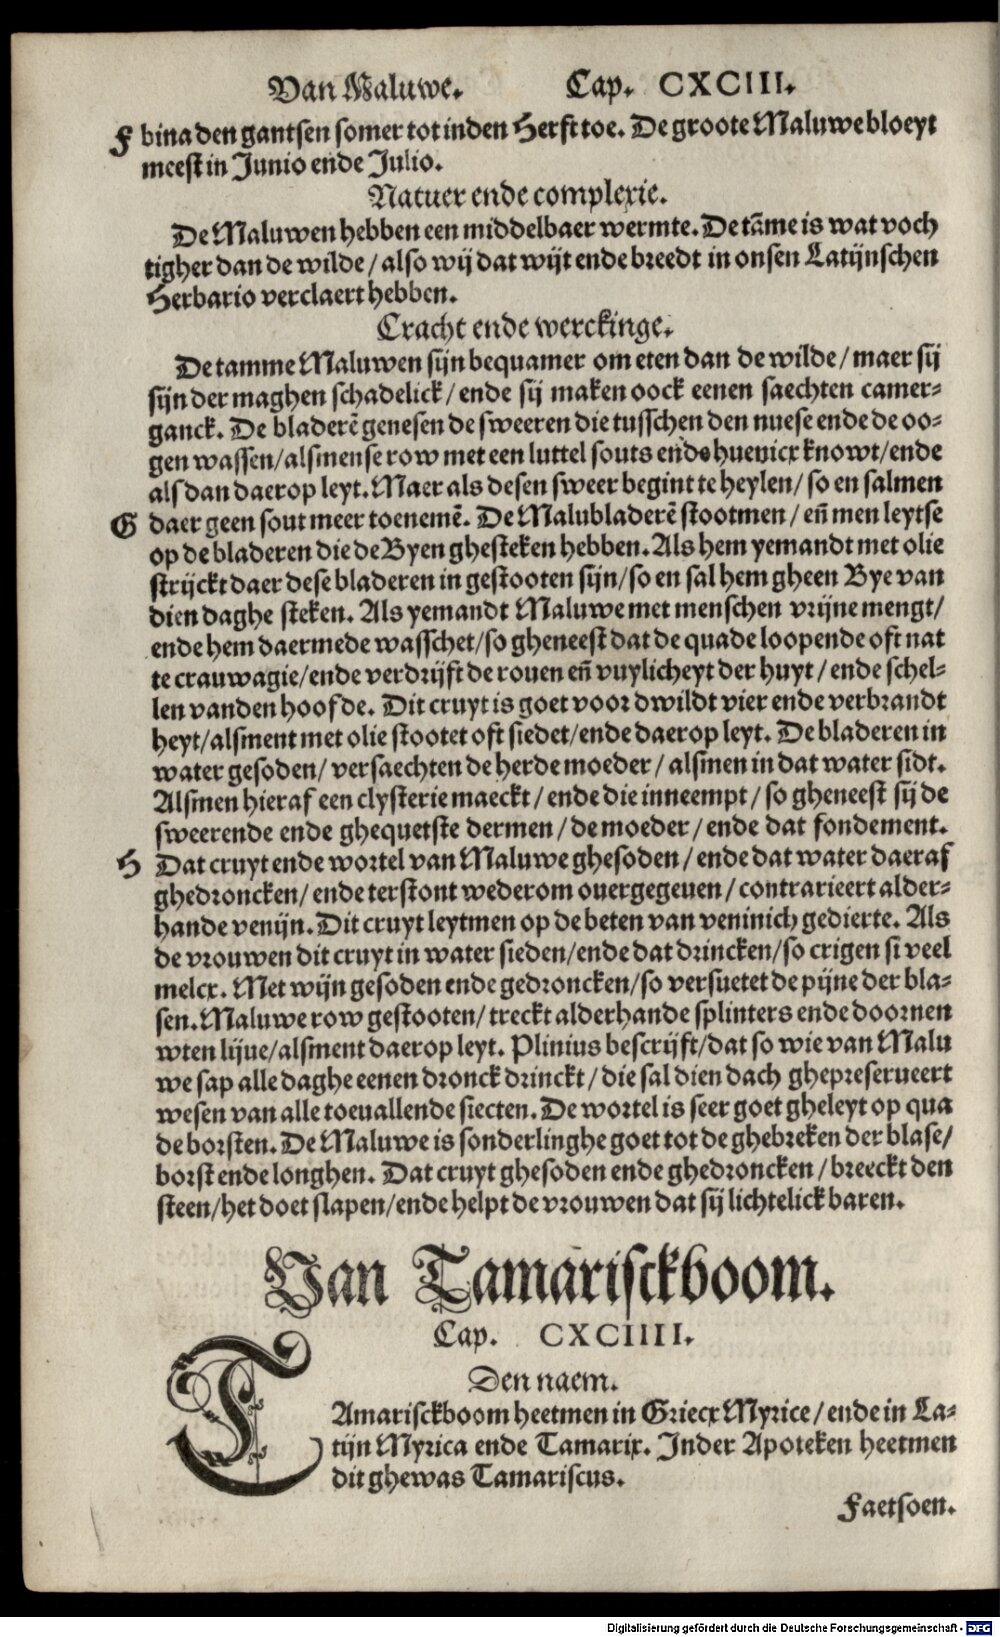 Van Maluwe. Cap. CXCIII.
F bina den gantsen somer tot inden Herfst toe. De groote Maluwe bloeyt
meest in Junio ende Julio.
Natuer ende complexie.
De Maluwen hebben een middelbaer wermte. De tāme is wat voch
tigher dan de wilde / also wij dat wijt ende breedt in onsen Latijnschen
Herbario verclaert hebben.
Cracht ende werckinge.
De tamme Maluwen sijn bequamer om eten dan de wilde / maer sij
sijn der maghen schadelick / ende sij maken oock eenen saechten camer-
ganck. De bladerē genesen de sweeren die tusschen den nuese ende de oo-
gen wassen / alsmense row met een luttel souts ende huenicx knowt / ende
als dan daer op leyt. Maer als desen sweer begint te heylen / so en salmen
G daer geen sout meer toe nemē. De Malubladerē stootmen / eñ men leytse
op de bladeren die de Byen ghesteken hebben. Als hem yemandt met olie
strijckt daer dese bladeren in gestooten sijn / so en sal hem gheen Bye van
dien daghe steken. Als yemandt Maluwe met menschen vrijne mengt /
ende hem daermede wasschet / so gheneest dat de quade loopende oft nat
te crauwagie / ende verdrijft de rouen eñ vuylicheyt der huyt / ende schel-
len vanden hoofde. Dit cruyt is goet voor dwildt vier ende verbrandt
heyt / alsment met olie stootet oft siedet / ende daer op leyt. De bladeren in
water gesoden / versaechten de herde moeder / alsmen in dat water sidt.
Alsmen hieraf een clysterie maeckt / ende die inneempt / so gheneest sij de
sweerende ende ghequetste dermen / de moeder / ende dat fondement.
H Dat cruyt ende wortel van Maluwe ghesoden / ende dat water daeraf
ghedroncken / ende terstont wederom ouergegeuen / contrarieert alder-
hande venijn. Dit cruyt leytmen op de beten van veninich gedierte. Als
de vrouwen dit cruyt in water sieden / ende dat drincken / so crigen si veel
melcx. Met wijn gesoden ende gedroncken / so versuetet de pijne der bla-
sen. Maluwe row gestooten / treckt alderhande splinters ende doornen
wten lijue / alsment daer op leyt. Plinius bescrijft / dat so wie van Malu
we sap alle daghe eenen dronck drinckt / die sal dien dach ghepreserueert
wesen van alle toeuallende siecten. De wortel is seer goet gheleyt op qua
de borsten. De Maluwe is sonderlinghe goet tot de ghebreken der blase /
borst ende longhen. Dat cruyt ghesoden ende ghedroncken / breeckt den
steen / het doet slapen / ende helpt de vrouwen dat sij lichtelick baren.
Van Tamarisckboom.
Cap. CXCIIII.
Den naem.
TAmarisckboom heetmen in Griecx Myrice / ende in La-
tijn Myrica ende Tamarix. Inder Apoteken heetmen
dit ghewas Tamariscus.
Faetsoen.
Digitalisierung gefördert durch die Deutsche Forschungsgemeinschaft - DFG